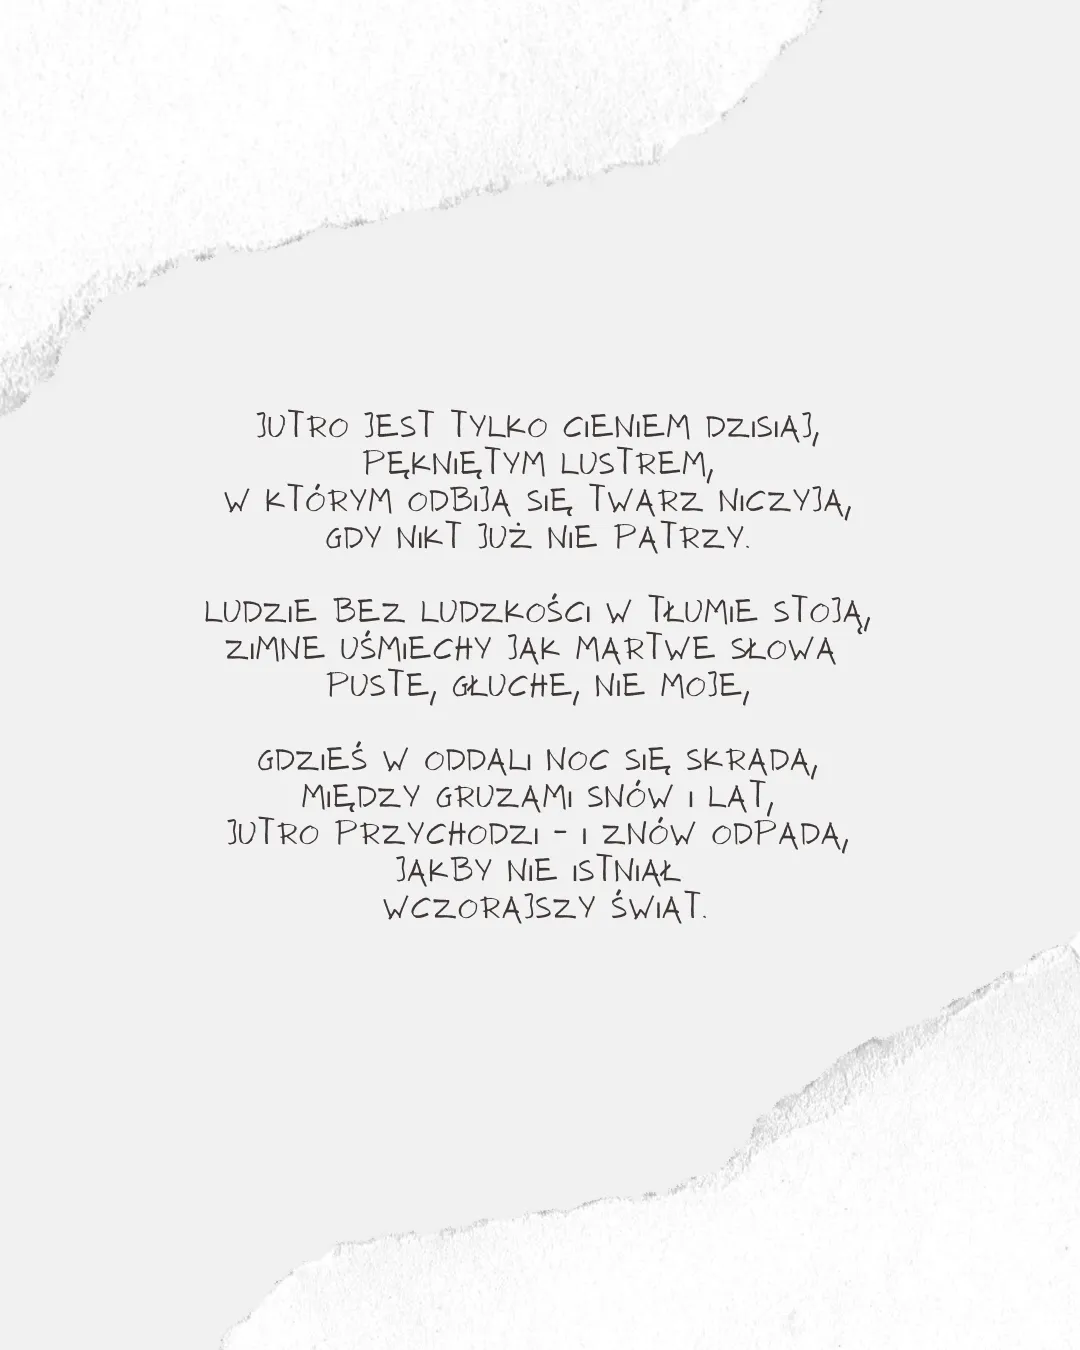 JUTRO JEST TYLKO CIENIEM DZISIAJ,
PĘKNIĘTYM LUSTREM,
W KTÓRYM ODBIJA SIĘ TWARZ NICZYJA,
GDY NIKT JUŻ NIE PATRZY.
LUDZIE BEZ LUDZKOŚCI W TŁUMIE STOJĄ,
ZIMNE UŚMIECHY JAK MARTWE SŁOWA
PUSTE, GŁUCHE, NIE MOJE,
GDZIEŚ W ODDALI NOC SIĘ SKRADA,
MIĘDZY GRUZAMI SNÓW I LAT,
JUTRO PRZYCHODZI - I ZNÓW ODPADA,
JAKBY NIE ISTNIAŁ
WCZORAJSZY ŚWIAT.